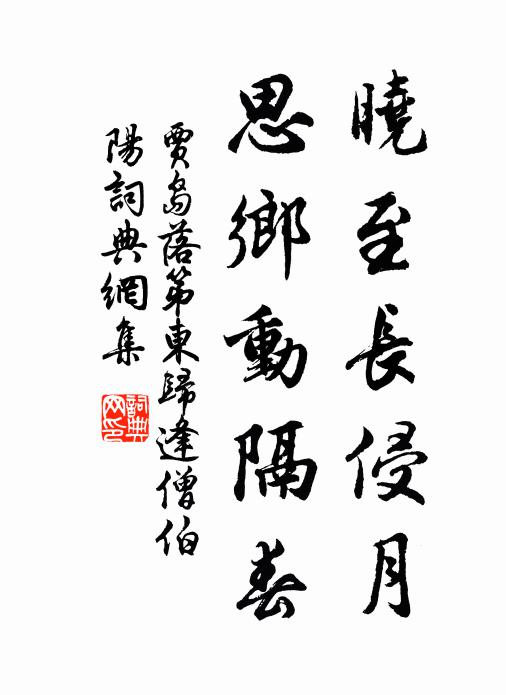 曉至長侵月
思鄉動隔春
賈島落第東歸逢僧伯
陽詞典網集
詞典
网印